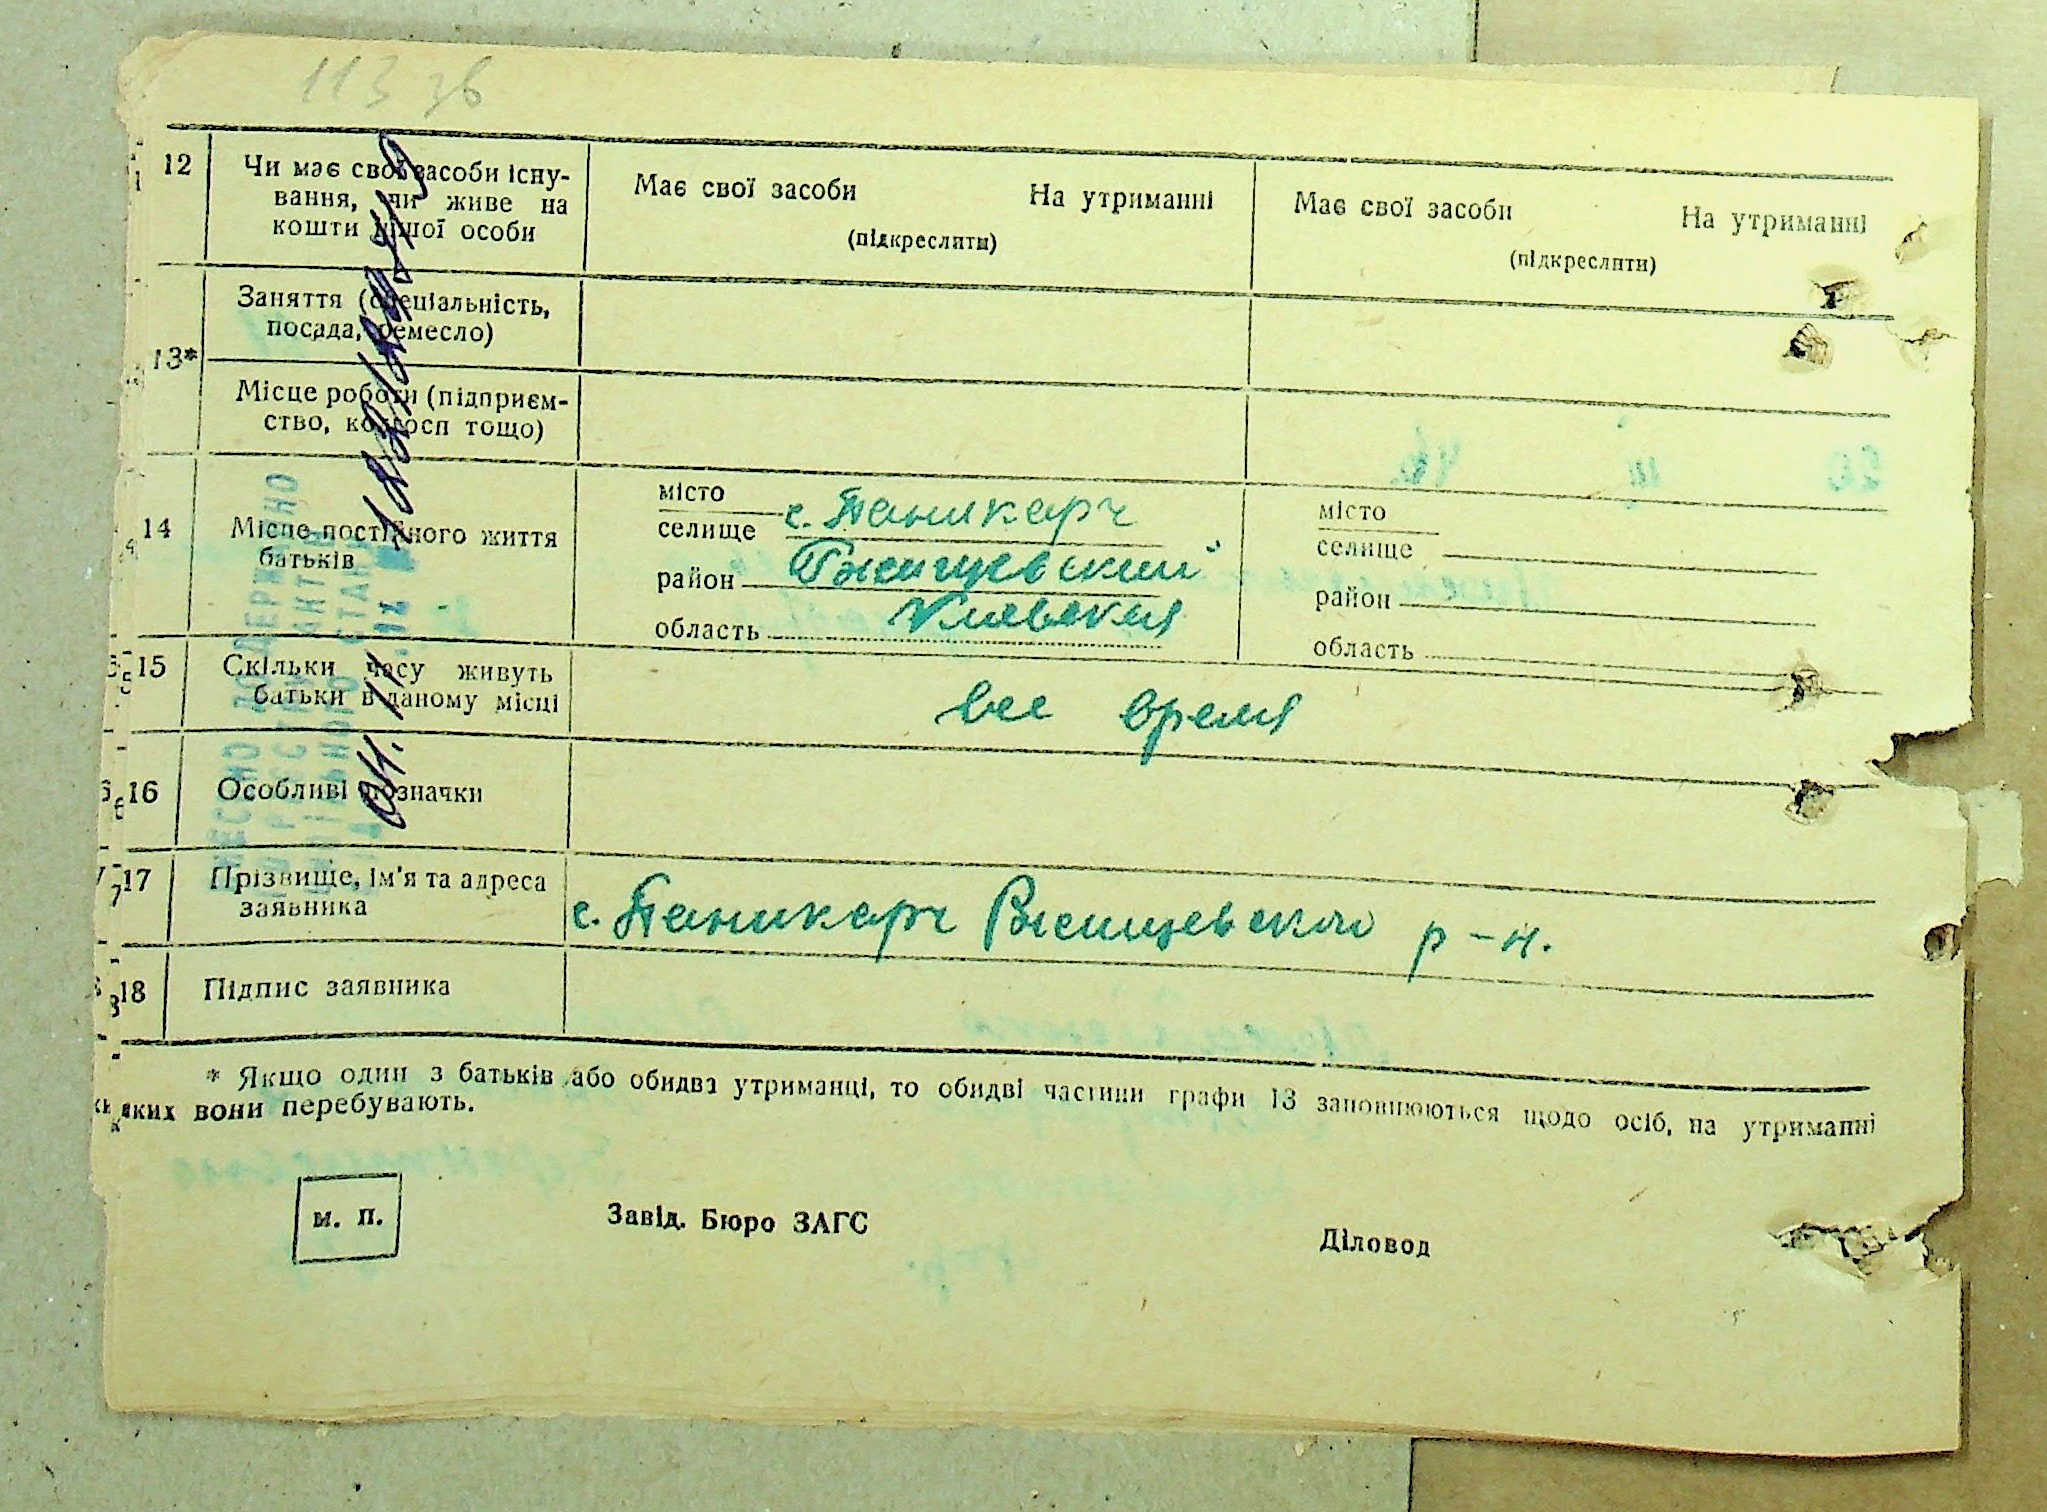 113 зв
12 Чи має свої засоби існу-
вання, чи живе на
кошти іншої особи
Має свої засоби На утриманні
(підкреслити)
Має свої засоби На утриманні
(підкреслити)
13*
Заняття (спеціальність,
посада, ремесло)
Місце роботи (підприєм-
ство, колгосп тощо)
14 Місце постійного життя
батьків
місто
селище с. Паникарч
район Ржищевский
область Киевская
місто
селище
район
область
15 Скільки часу живуть
батьки в даному місці
все время
16 Особливі позначки
17 Прізвище, ім'я та адреса
заявника
с. Паникарч Ржищевского р-н.
18 Підпис заявника
* Якщо один з батьків або обидва утриманці, то обидві частини графи 13 заповнюються щодо осіб, на утриманні
яких вони перебувають.
М. П.
Завід. Бюро ЗАГС
Діловод